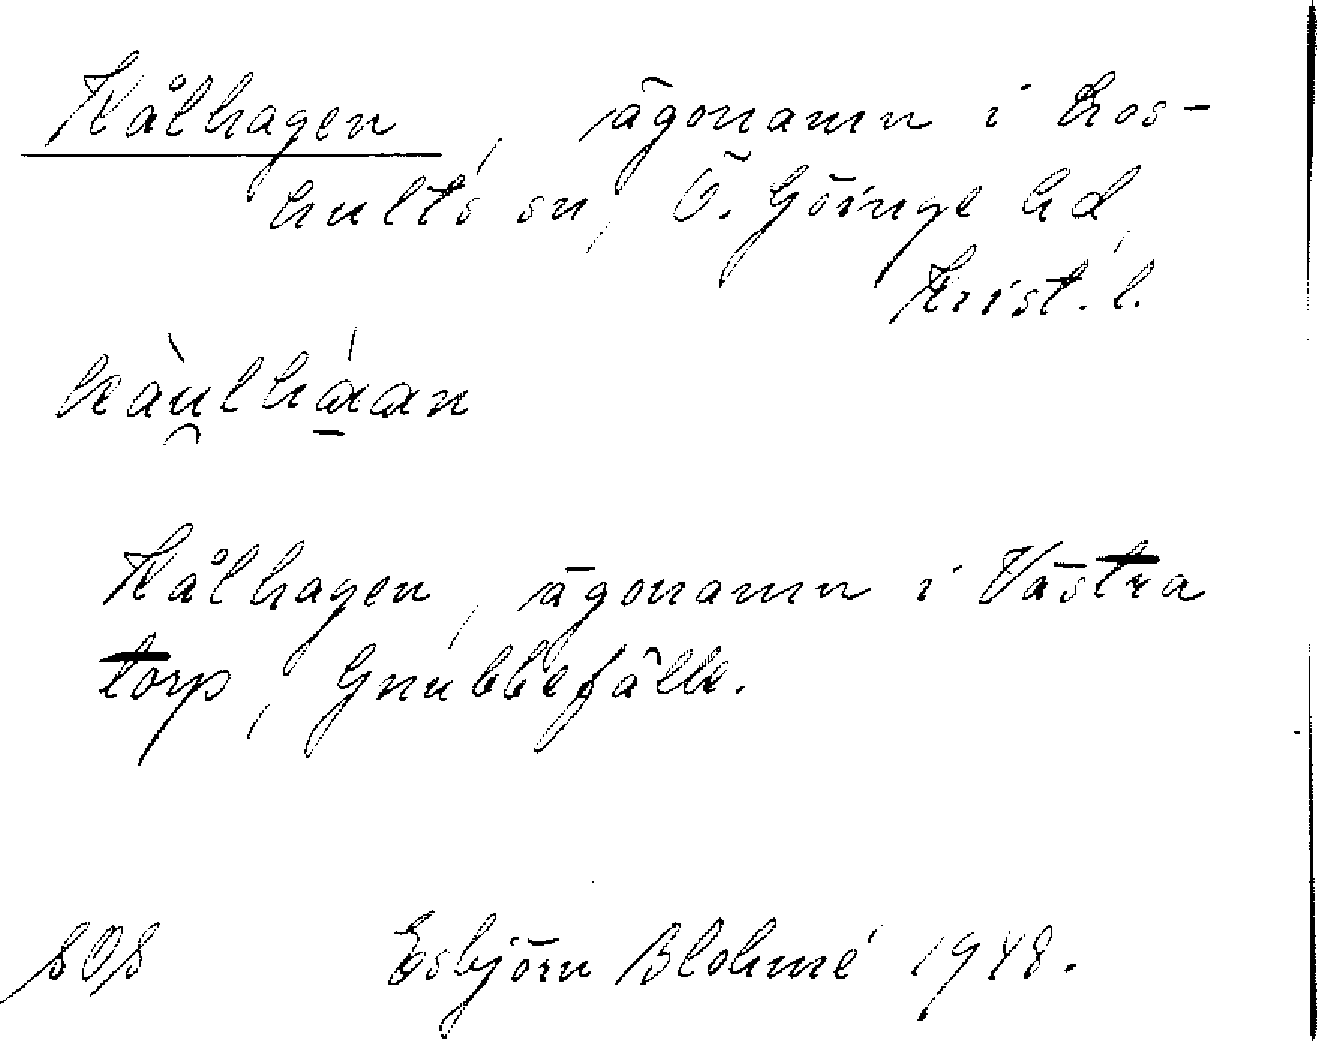 Kålhagen, ägonamn i Los-
hults sn, Ö. Göinge hd,
Krist. l.
kàu̯lhá̱ɑɑn
Kålhagen, ägonamn i Västra
torp, Gnubbefälle.
SOS Esbjörn Blohmé 1948.